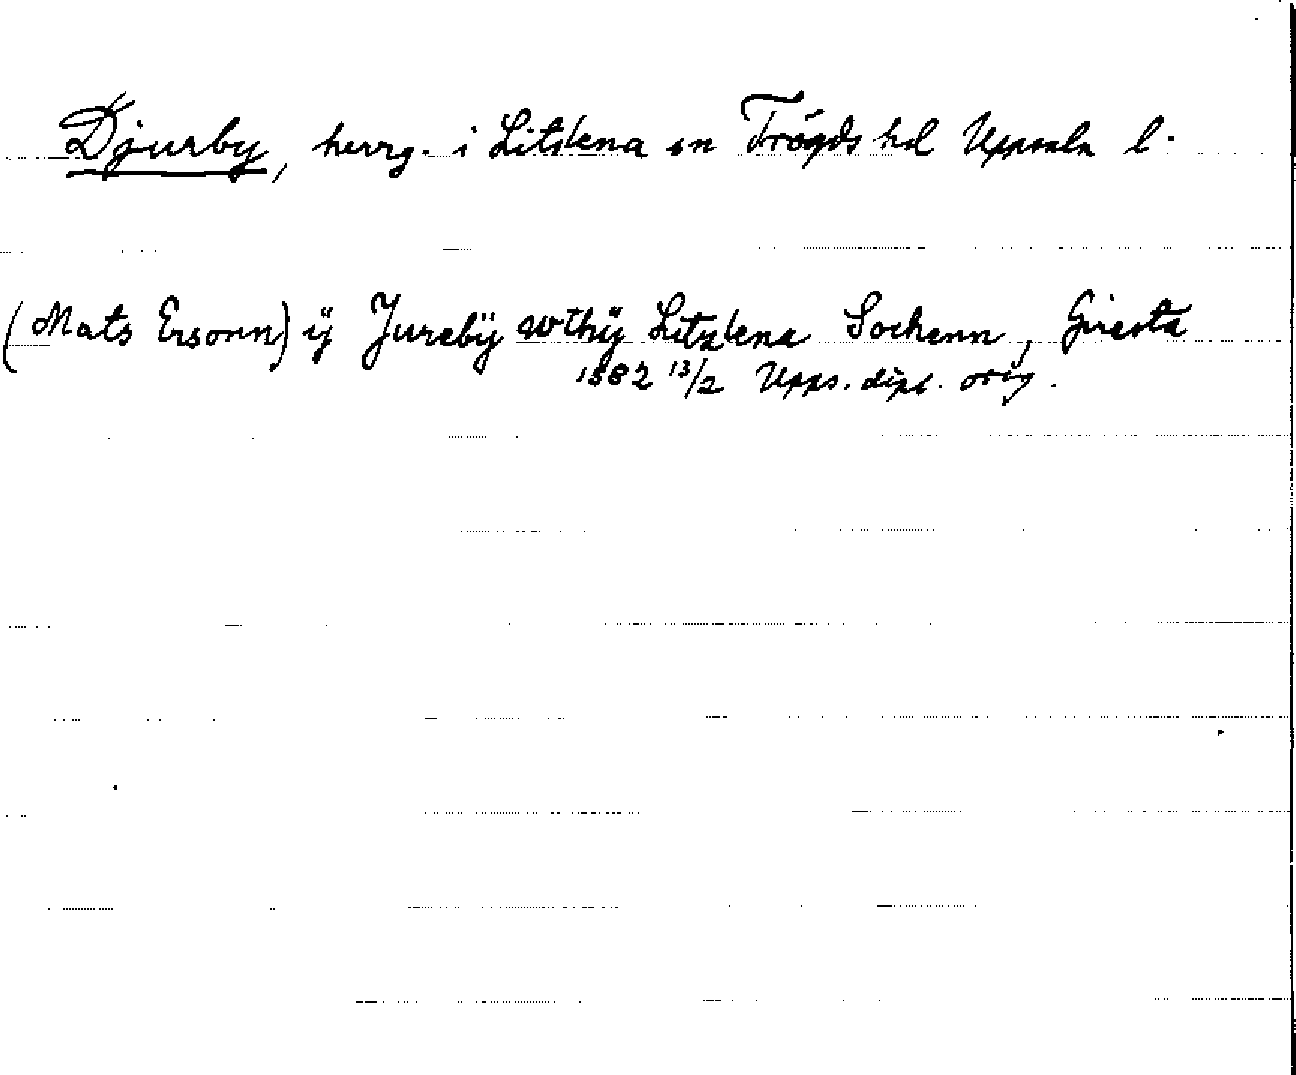 Djurby, herrg. i Litslena sn Trögds hd Uppsala l.
(Mats Ersonn) ij Jurebÿ wthÿ Litzlena Sochenn, Giresta
1582 13/2 Upps. dipl. orig.